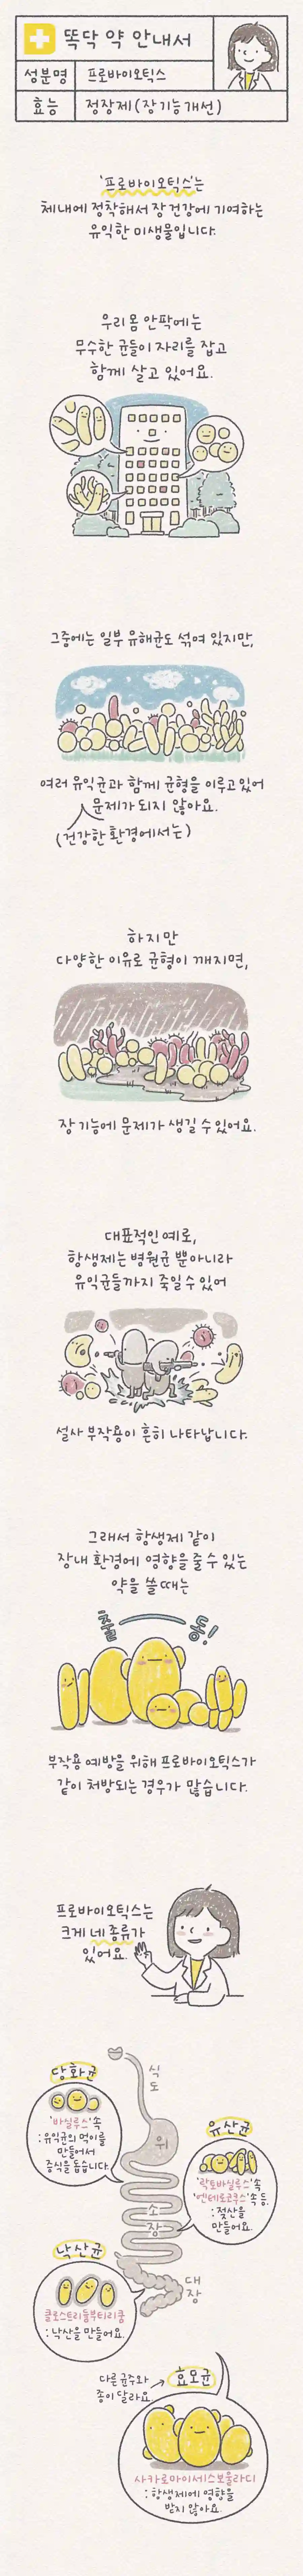 똑닥 약 안내서
성분명
프로바이오틱스
효능
정장제(장기능개선)
'프로바이오틱스'는
체내에 정착해서 장 건강에 기여하는
유익한 미생물입니다.
우리 몸 안팎에는
무수한 균들이 자리를 잡고
함께 살고 있어요.
그중에는 일부 유해균도 섞여 있지만,
여러 유익균과 함께 균형을 이루고 있어
문제가 되지 않아요.
(건강한 환경에서는)
하지만
다양한 이유로 균형이 깨지면,
장 기능에 문제가 생길 수 있어요.
대표적인 예로,
항생제는 병원균 뿐아니라
유익균들까지 죽일 수 있어
설사 부작용이 흔히 나타납니다.
그래서 항생제 같이
장내 환경에 영향을 줄 수 있는
약을 쓸 때는
출동!
부작용 예방을 위해 프로바이오틱스가
같이 처방되는 경우가 많습니다.
프로바이오틱스는
크게 네 종류가
있어요.
식도
위
소장
대장
당화균
'바실루스'속
: 유익균의 먹이를
만들어서
증식을 돕습니다.
유산균
'락토바실루스'속
'엔테로코쿠스'속 등.
: 젖산을
만들어요.
낙산균
클로스트리듐부티리쿰
: 낙산을 만들어요.
다른 균주와
종이 달라요.
효모균
사카로마이세스보울라디
: 항생제에 영향을
받지 않아요.